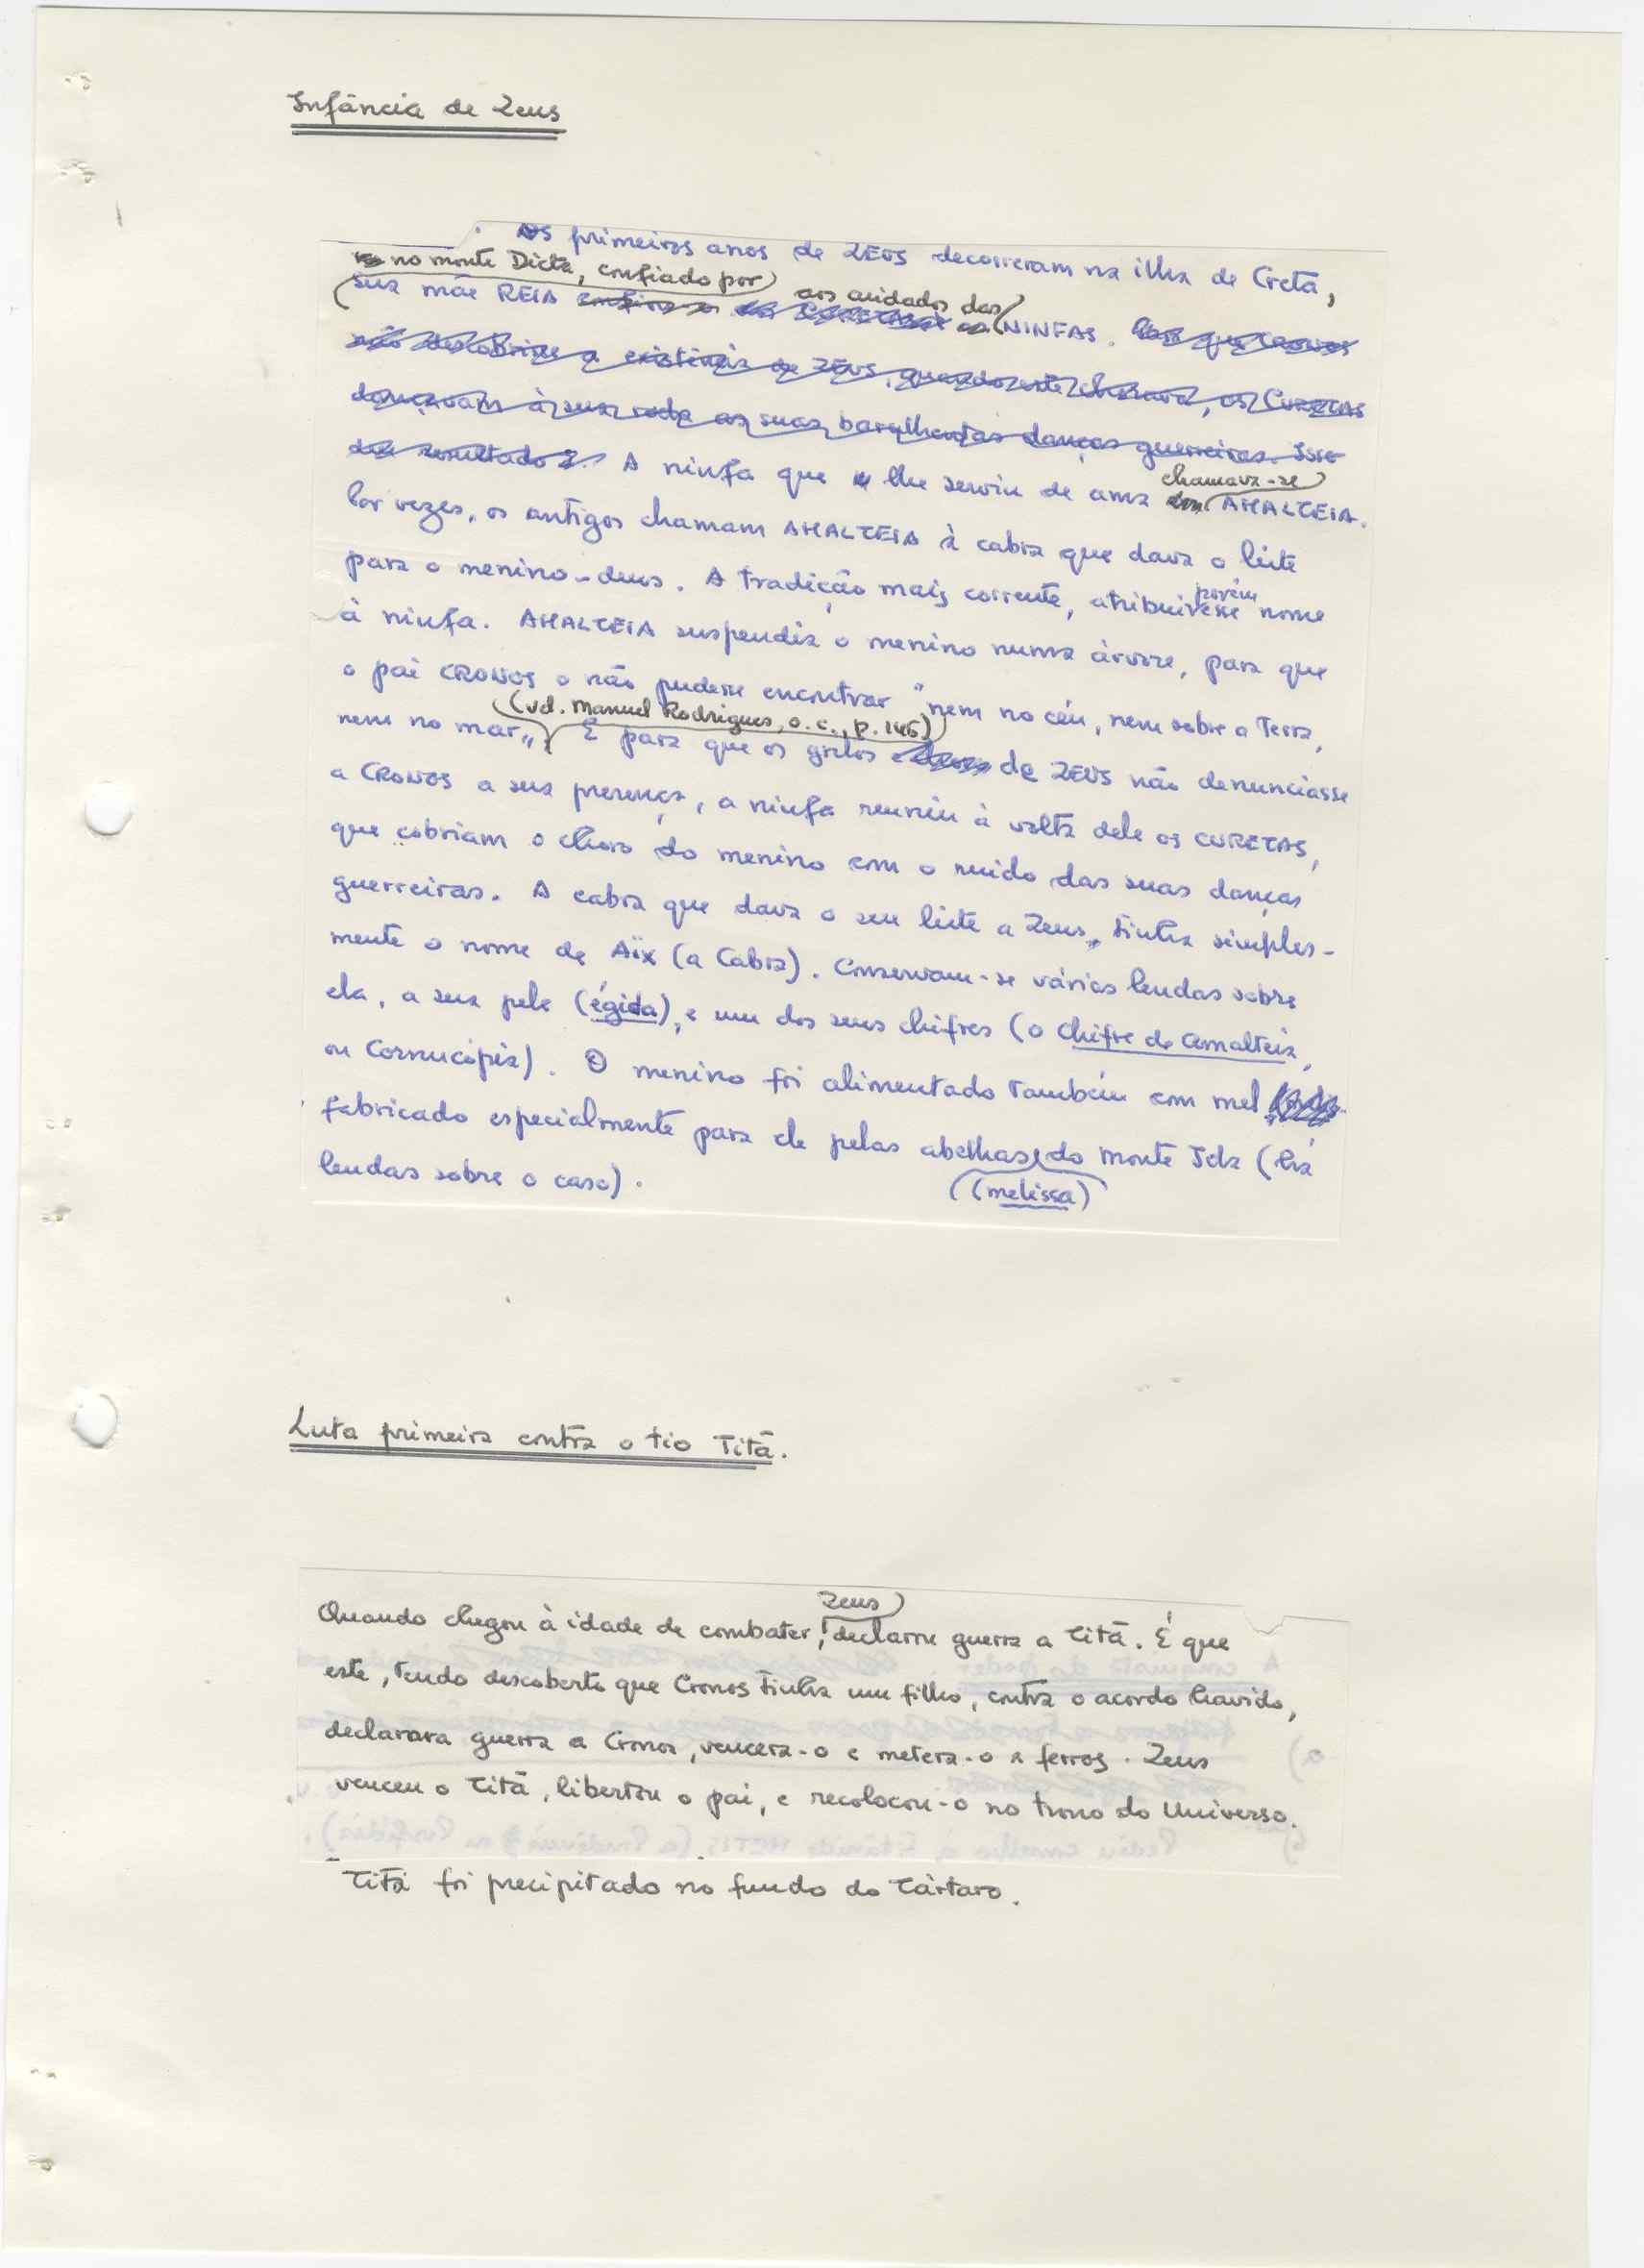 Infância de Zeus
Os primeiros anos de ZEUS decorreram na ilha de Creta,
no monte Dicta, confiado por
sua mãe REIA aos cuidados das NINFAS. Para que Cronos
não descobrisse a existência de ZEUS, quando este chorava, os CURETAS
dançavam à sua roda as suas barulhentas danças guerreiras. Isso
deu resultado. A ninfa que lhe serviu de ama chamava-se AMALTEIA.
Por vezes, os antigos chamam AMALTEIA à cabra que dava o leite
para o menino-deus. A tradição mais corrente, atribui porém esse nome
à ninfa. AMALTEIA suspendia o menino numa árvore, para que
o pai CRONOS o não pudesse encontrar "nem no céu, nem sobre a Terra,
nem no mar" (vd. Manuel Rodrigues, o. c., p. 146). E para que os gritos de ZEUS não denunciasse
a CRONOS a sua presença, a ninfa reuniu à volta dele os CURETAS,
que cobriam o choro do menino com o ruido das suas danças
guerreiras. A cabra que dava o seu leite a Zeus, tinha simples-
mente o nome de Aïx (a Cabra). Conservam-se várias lendas sobre
ela, a sua pele (égida), e um dos seus chifres (o chifre de Amalteia,
ou Cornucópia). O menino foi alimentado também com mel
fabricado especialmente para ele pelas abelhas (melissa) do monte Ida (há
lendas sobre o caso).
Luta primeira contra o tio Titã.
Quando chegou à idade de combater, Zeus declarou guerra a Titã. É que
este, tendo descoberto que Cronos tinha um filho, contra o acordo havido,
declarara guerra a Cronos, vencera-o e metera-o a ferros. Zeus
venceu o Titã, libertou o pai, e recolocou-o no trono do Universo.
Titã foi precipitado no fundo do Tártaro.